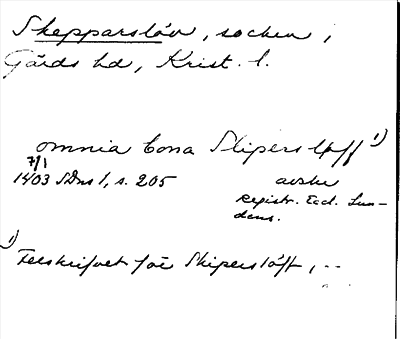 Skepparslöv, socken,
Gärds hd, Krist. l.
omnia bona Slipersløff 1)
7/1
1403 SDns 1, s. 205 avskr
Registr. Eccl. Lun-
dens.
1) Felskrifvet för Skiperslöff, --